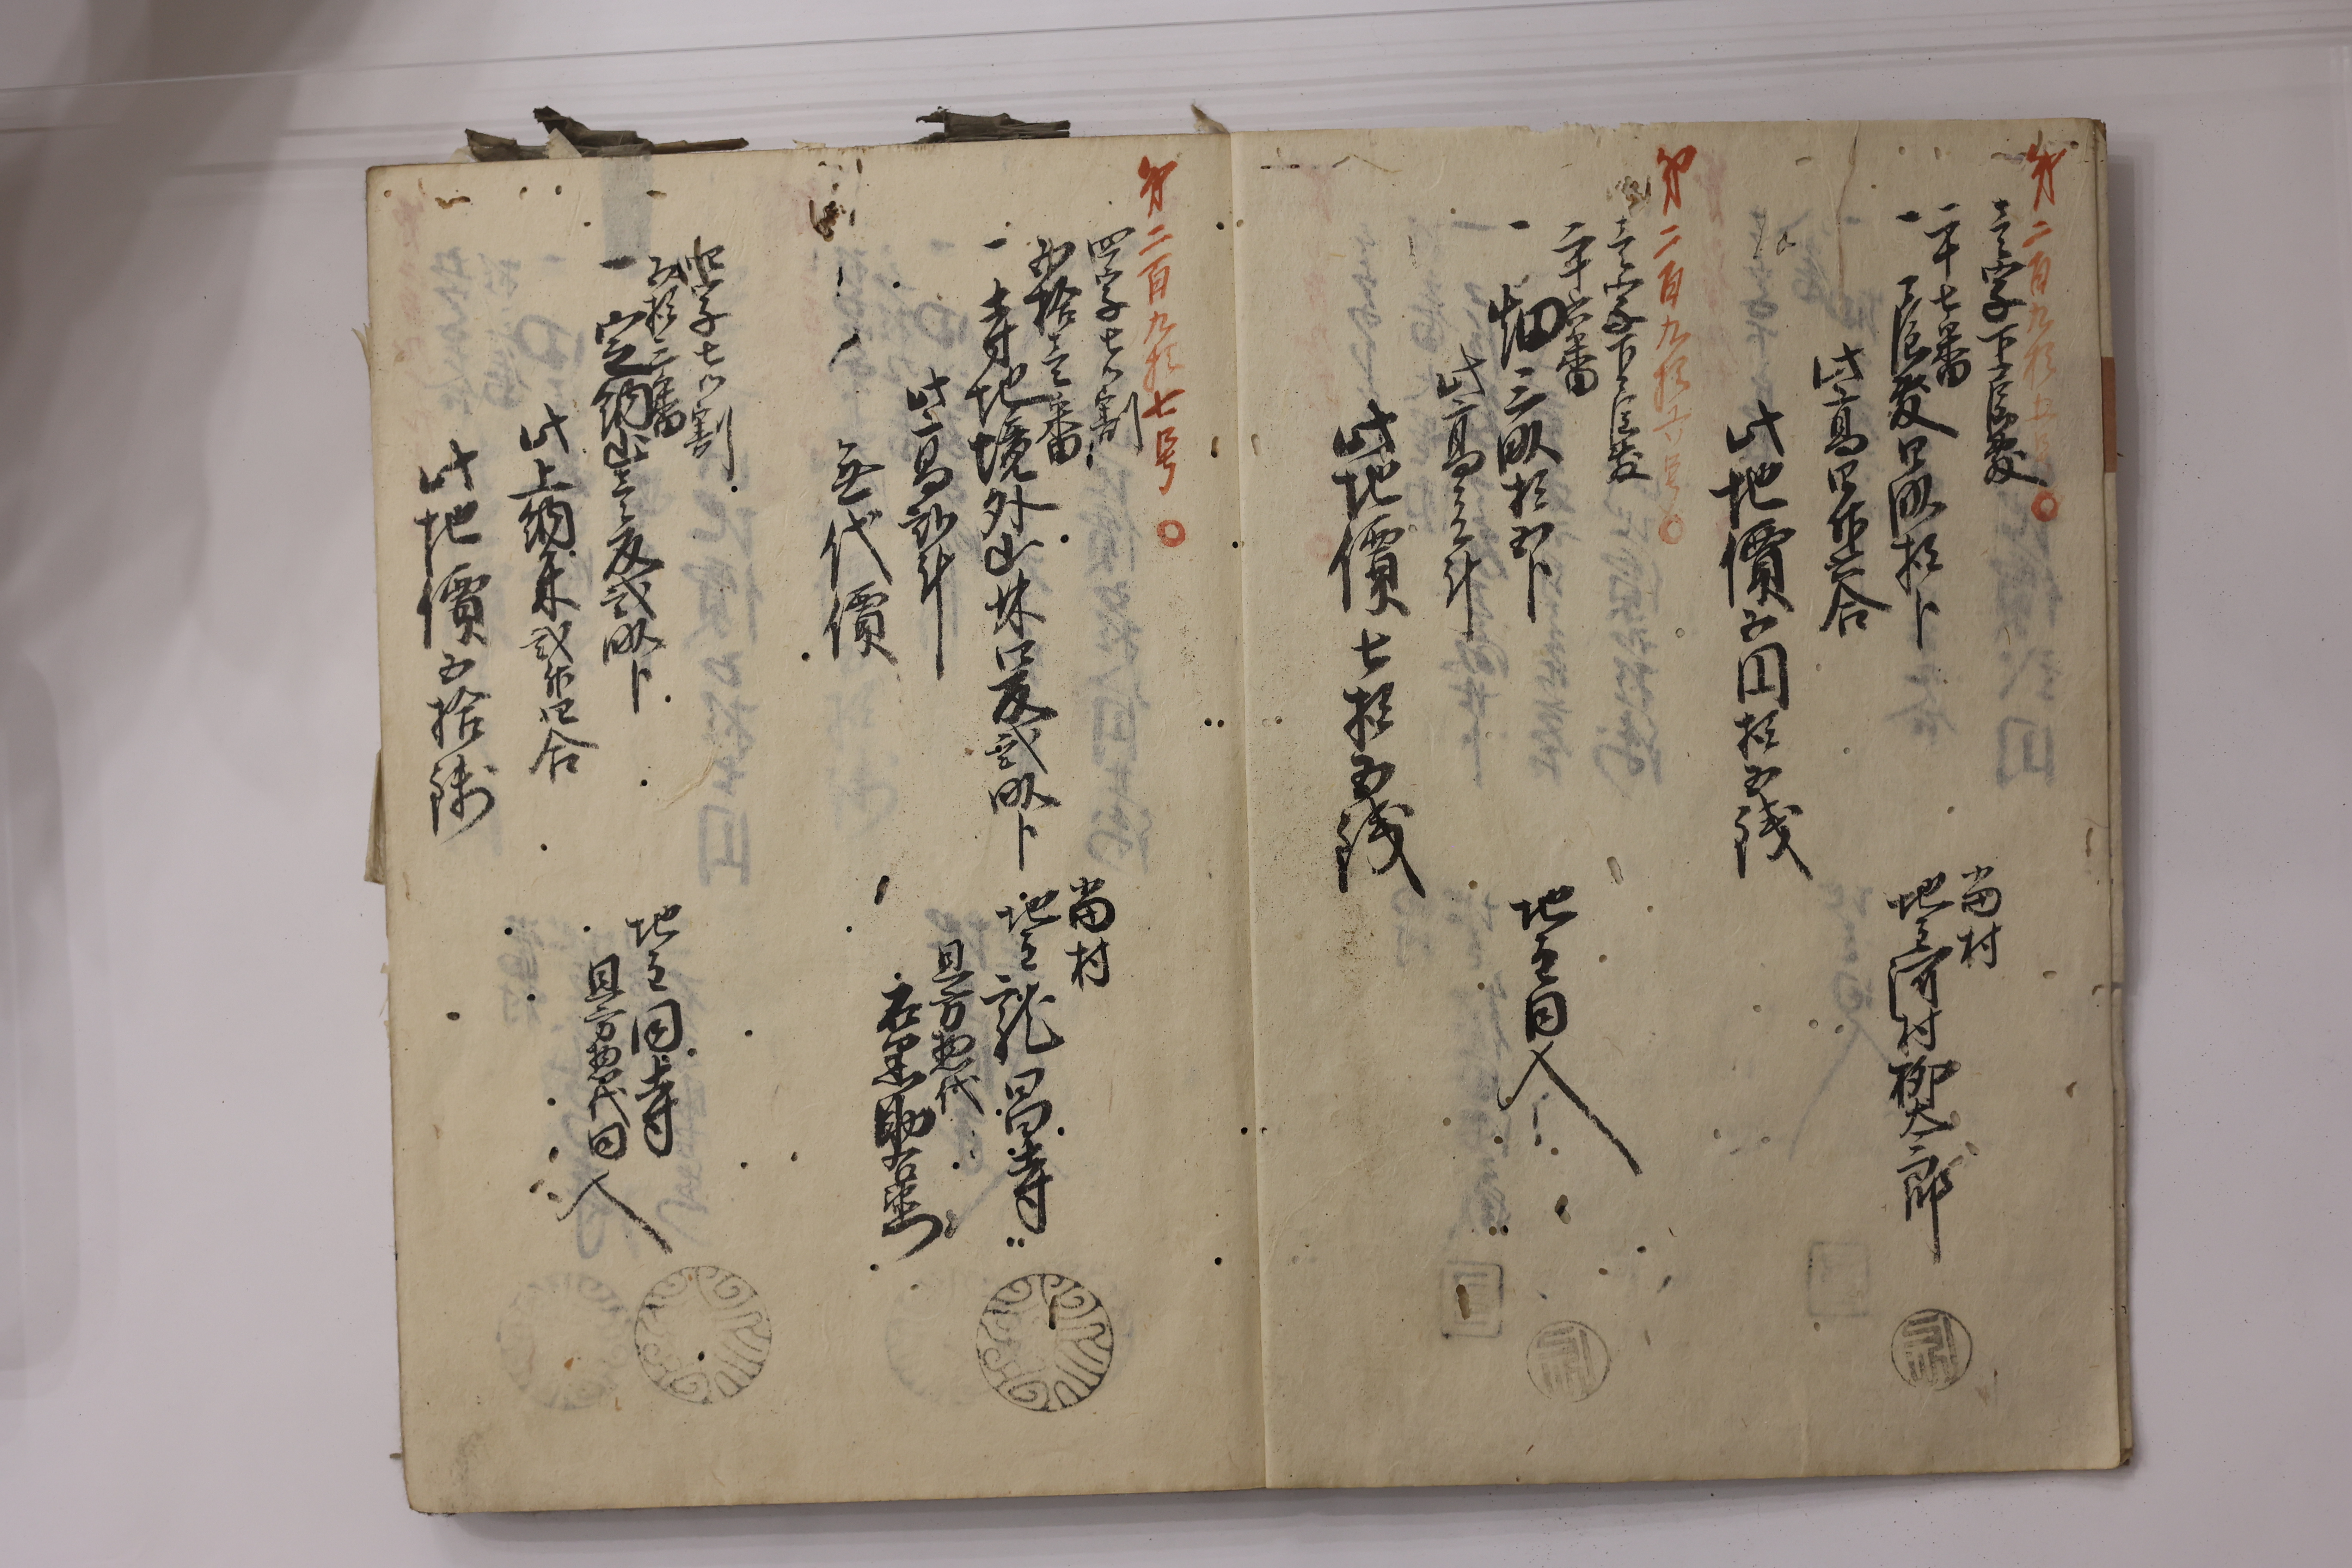 第二百九拾五号
壱字下々反發
二十七番
一 反發四畝拾卜
此高四升六合
此地價五円拾五銭
当村
地主河村柳太郎
第二百九拾六号
壱字下々反發
二十六番
一 畑三畝拾五卜
此高三斗
此地價七拾五銭
地主同人
第二百九拾七号
四字七ツ割
五拾壱番
一 寺地境外山林四反弐畝卜
此高弐斗
無代價
当村
地主龍昌寺
旦方惣代
四字七ツ割
五拾二番
一 定納山壱反弐畝卜
此上納米弐升四合
此地價五拾銭
地主同寺
旦方惣代同人